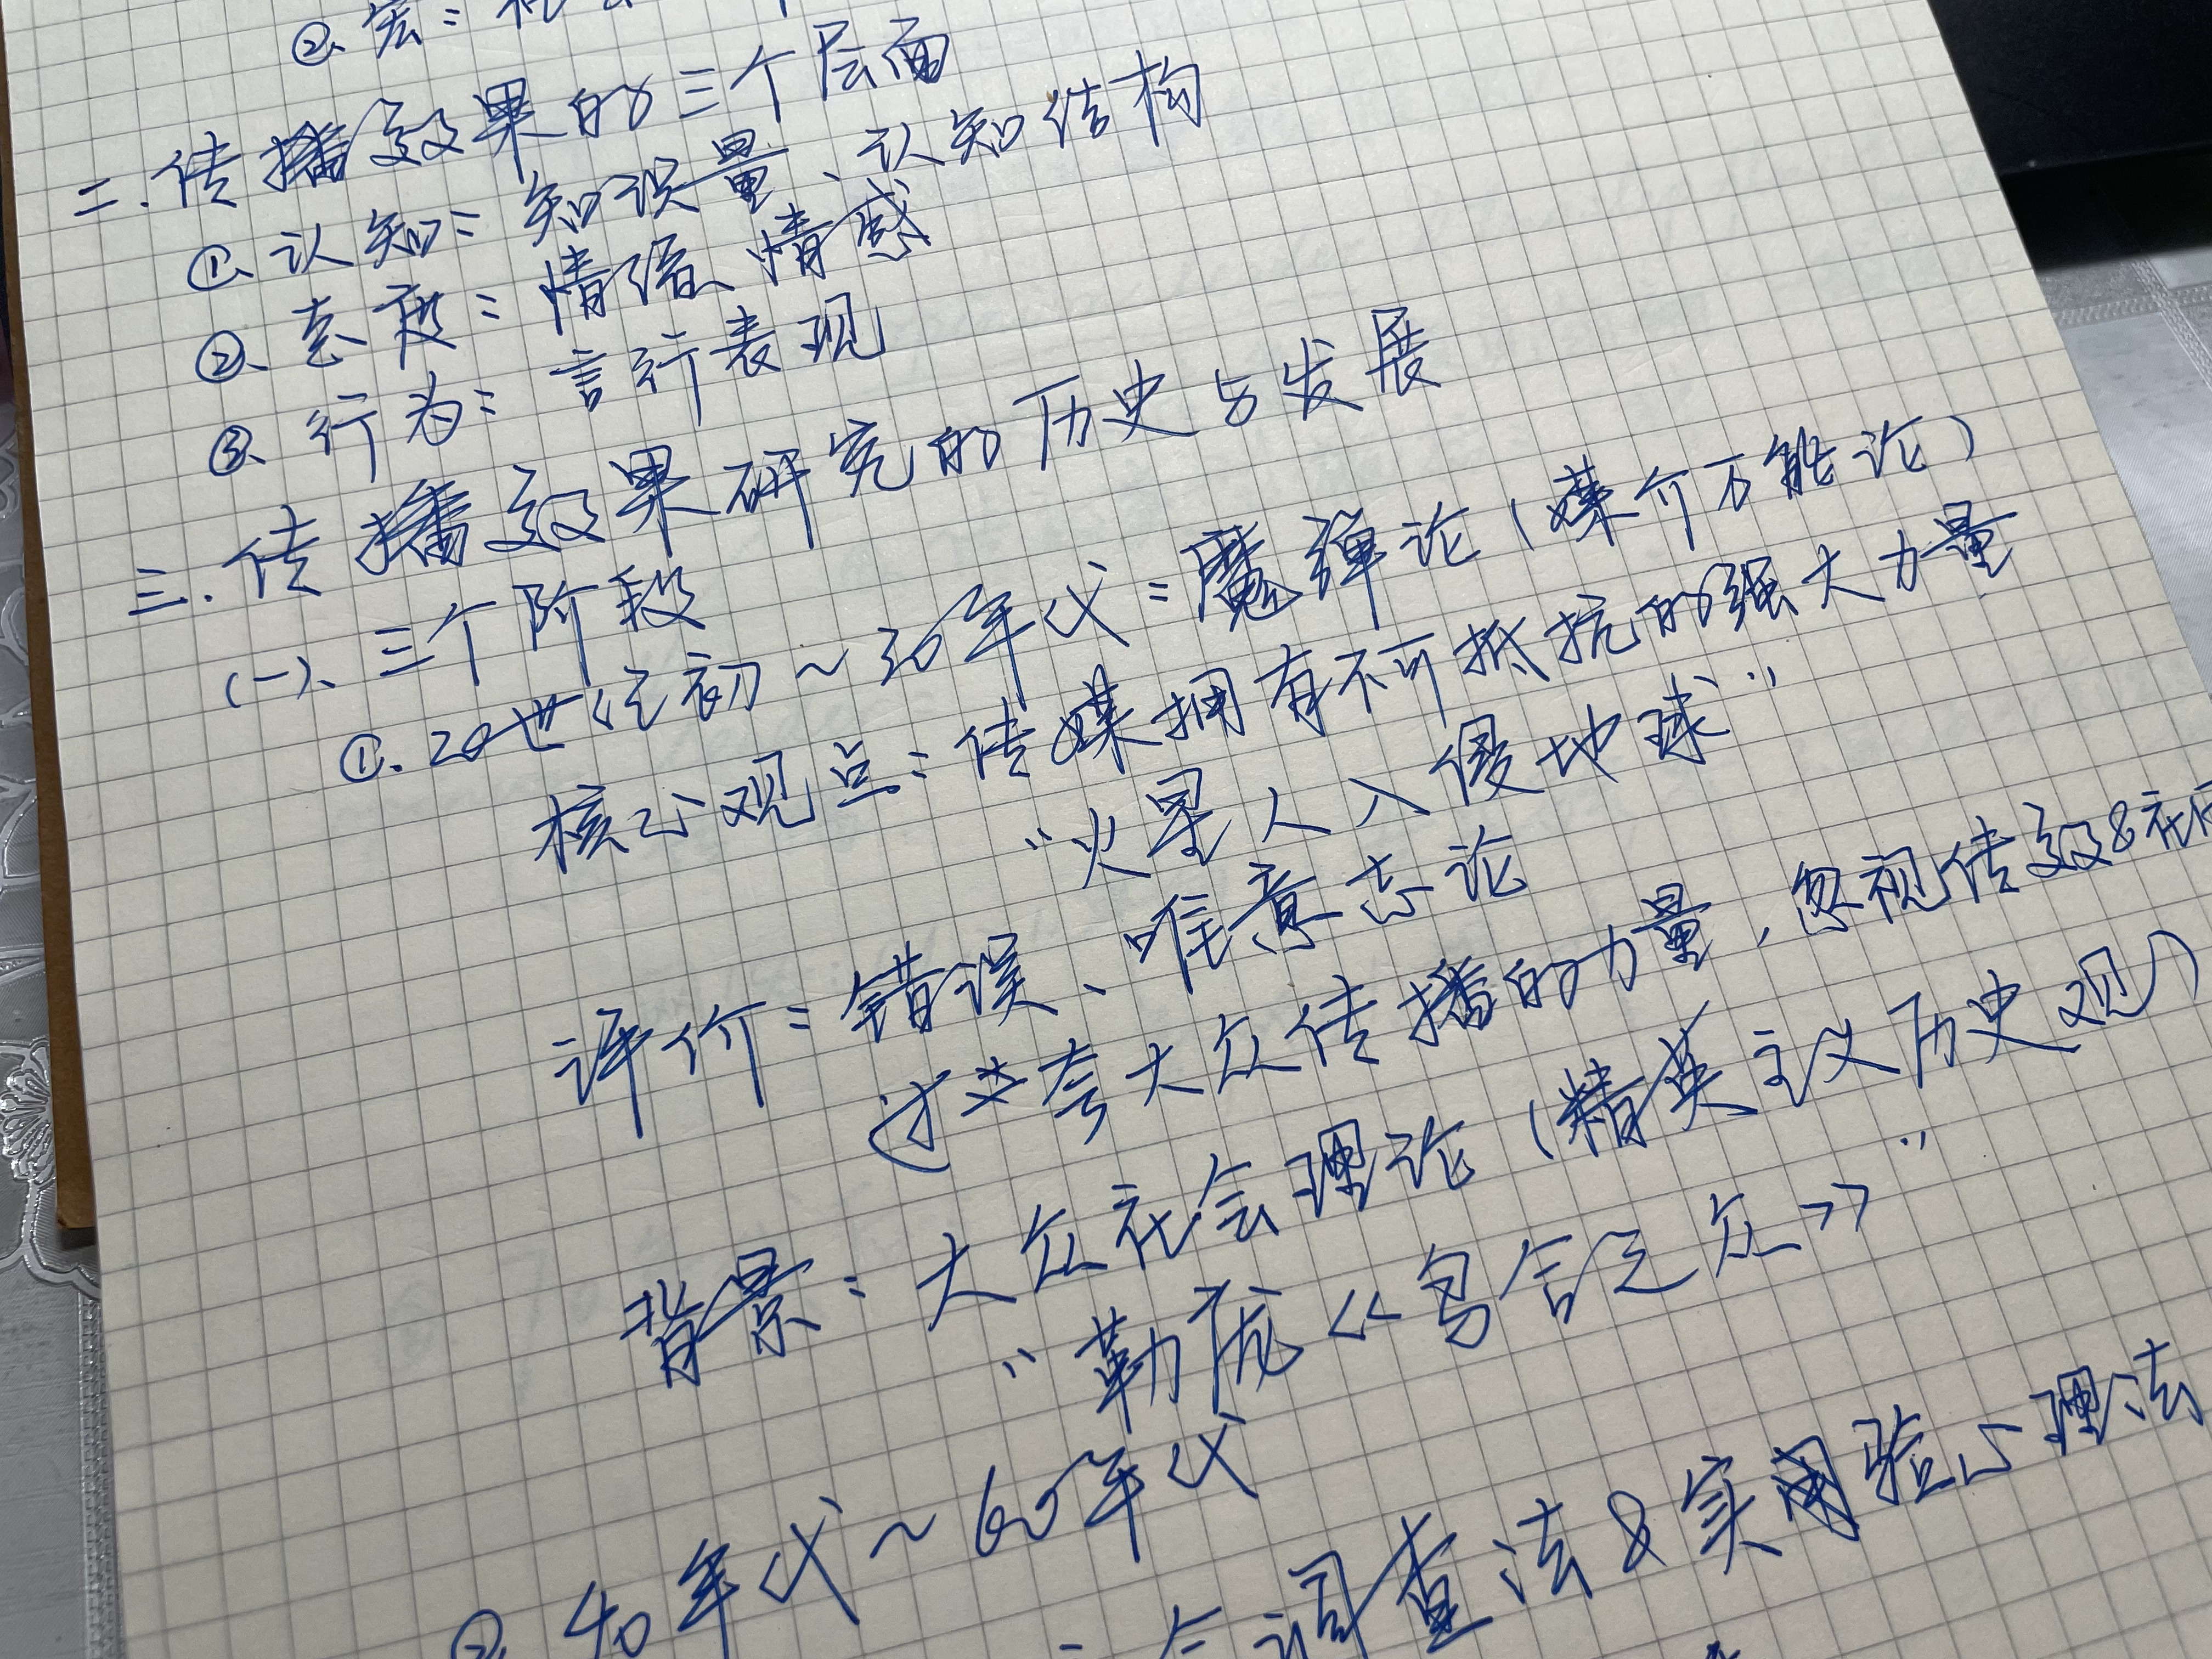 ②、宏：社
二.传播效果的三个层面
①、认知：知识量、认知结构
②、态度：情绪、情感
③、行为：言行表现
三.传播效果研究的历史与发展
(一)、三个阶段
①.20世纪初~30年代：魔弹论(媒介万能论)
核心观点：传媒拥有不可抵抗的强大力量
"火星人入侵地球"
评价：错误、唯意志论
过分夸大众传播的力量,忽视传效&社
背景：大众社会理论(精英主义历史观)
"勒庞《乌合之众》"
②40年代~60年代
调查法&实验心理法